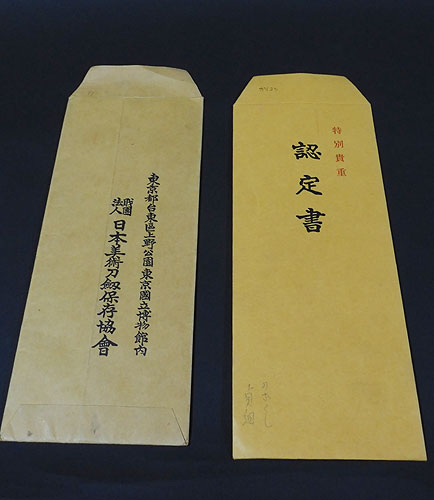 東京都台東區上野公園東京國立博物館内
財團法人 日本美術刀劔保存協會
特別貴重
認定書
貞細